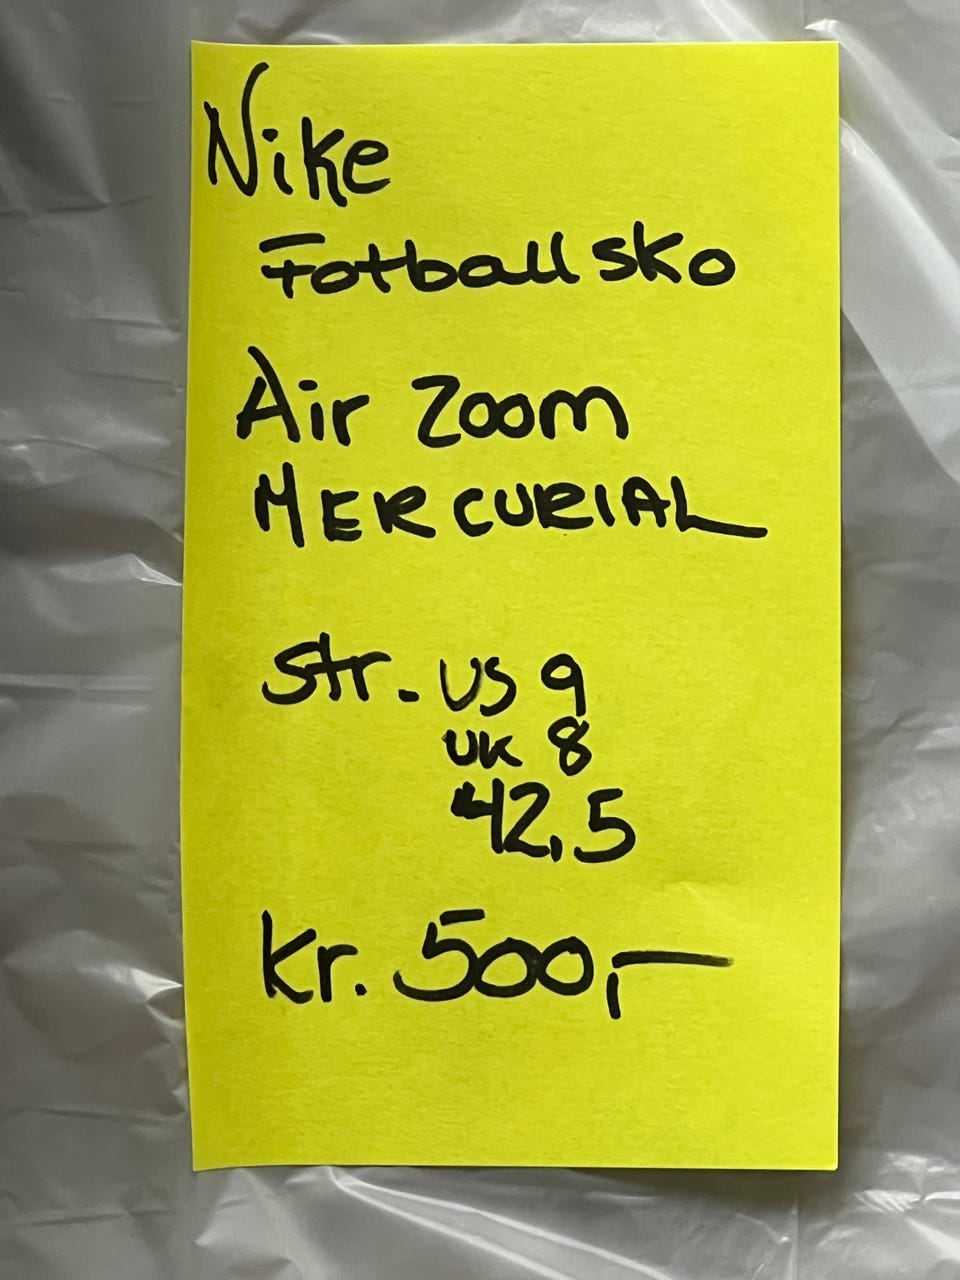 Nike
Fotballsko
Air Zoom
MERCURIAL
Str. US 9
UK 8
42,5
Kr. 500,-